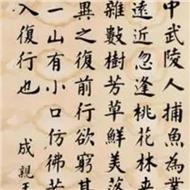 中武陵人捕魚為業
遠近忽逢桃花林
雜數樹芳草鮮美落
異之復前行欲窮其
一山有小口仿佛若
入復行也
成親王